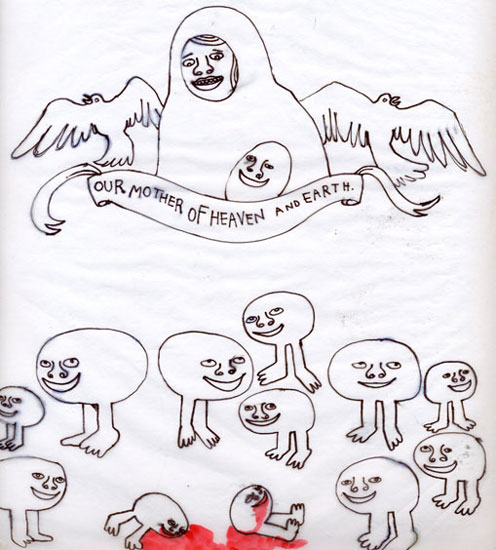 OUR MOTHER OF HEAVEN AND EARTH.